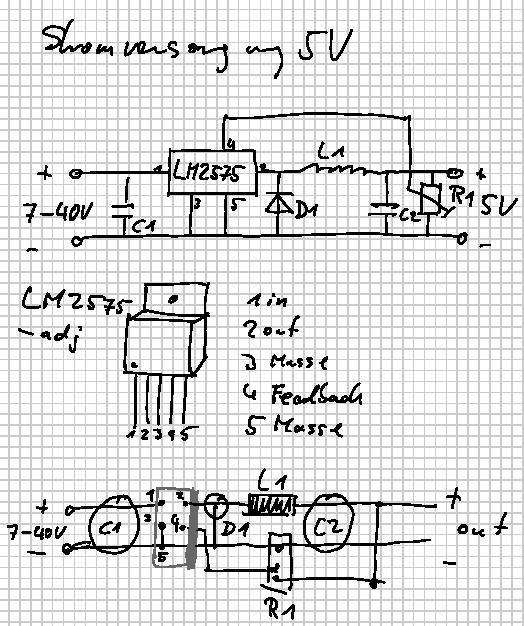 Stromversorgung 5V
4
+ 1 LM2575 2 L1 +
3 5 D1 C2 R1
7-40V C1 5V
- -
LM2575 1 in
-adj 2 out
3 Masse
4 Feedback
5 Masse
1 2 3 4 5
L1
+ 1 2 +
C1 3 4 D1 C2 out
7-40V
- 5 -
R1